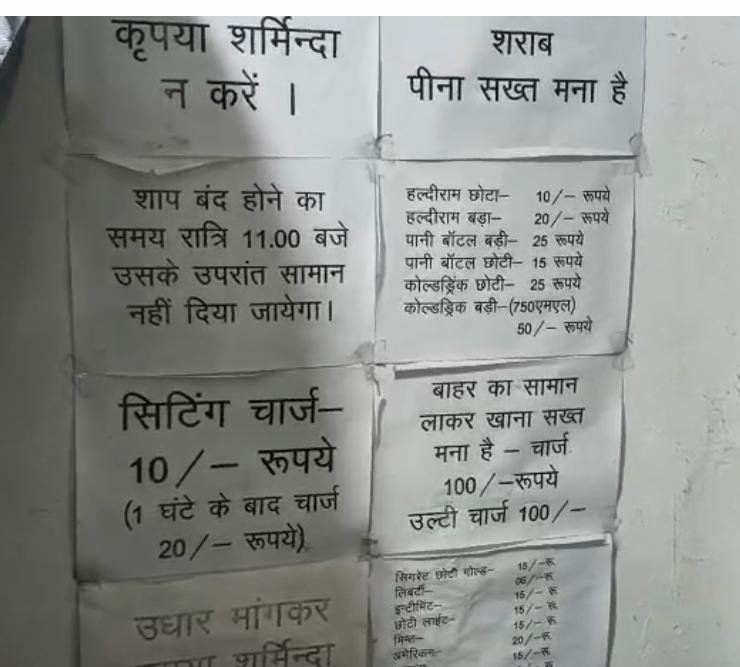 कृपया शर्मिन्दा
न करें ।
शराब
पीना सख्त मना है
शाप बंद होने का
समय रात्रि 11.00 बजे
उसके उपरांत सामान
नहीं दिया जायेगा।
हल्दीराम छोटा– 10/– रूपये
हल्दीराम बड़ा– 20/– रूपये
पानी बॉटल बड़ी– 25 रूपये
पानी बॉटल छोटी– 15 रूपये
कोल्डड्रिंक छोटी– 25 रूपये
कोल्डड्रिक बड़ी–(750एमएल)
50/– रूपये
सिटिंग चार्ज–
10/– रूपये
(1 घंटे के बाद चार्ज
20/– रूपये)
बाहर का सामान
लाकर खाना सख्त
मना है – चार्ज
100/–रूपये
उल्टी चार्ज 100/–
उधार मांगकर
कृपया शर्मिन्दा
सिगरेट छोटी गोल्ड– 15/–रू
लिबर्टी– 06/–रू
15/– रू
छोटी लाईट– 15/– रू
15/– रू
अमेरिकन– 20/–रू
15/–रू